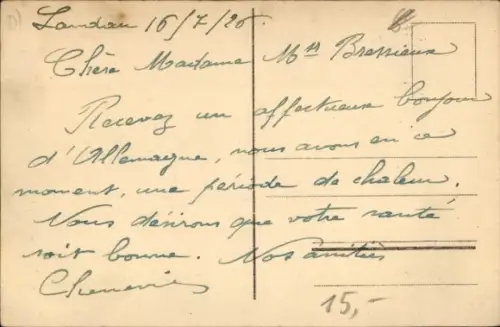 Landau 16/7/26
Chère Madame Mme Bressieux
Recevez un affectueux bonjour
d'Allemagne, nous avons en ce
moment, une période de chaleur.
Nous désirons que votre santé
soit bonne. Nos amitiés
15,-